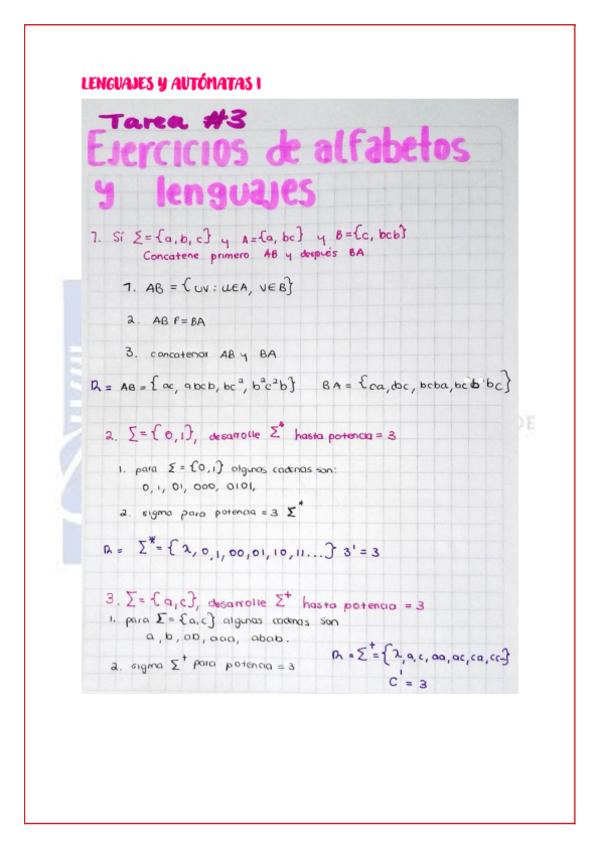 LENGUAJES Y AUTÓMATAS I
Tarea #3
Ejercicios de alfabetos
y lenguajes
1. Sí Σ={a,b,c} y A={a, bc} y B={c, bcb}
Concatene primero AB y después BA
1. AB = {uv : u∈A, v∈B}
2. AB f=BA
3. concatenar AB y BA
R = AB = {ac, abcb, bc², b²c²b} BA = {ca, cbc, bcba, bcb'bc}
2. Σ={0,1}, desarrolle Σ* hasta potencia = 3
1. para Σ={0,1} algunas cadenas son:
0, 1, 01, 000, 0101,
2. sigma para potencia = 3 Σ*
R = Σ*={λ, 0,1,00,01,10,11...} 3'=3
3. Σ={a,c}, desarrolle Σ⁺ hasta potencia = 3
1. para Σ={a,c} algunas cadenas son
a, b, ab, aaa, abab.
2. sigma Σ⁺ para potencia = 3
R = Σ⁺={λ,a,c,aa,ac,ca,cc..}
C' = 3